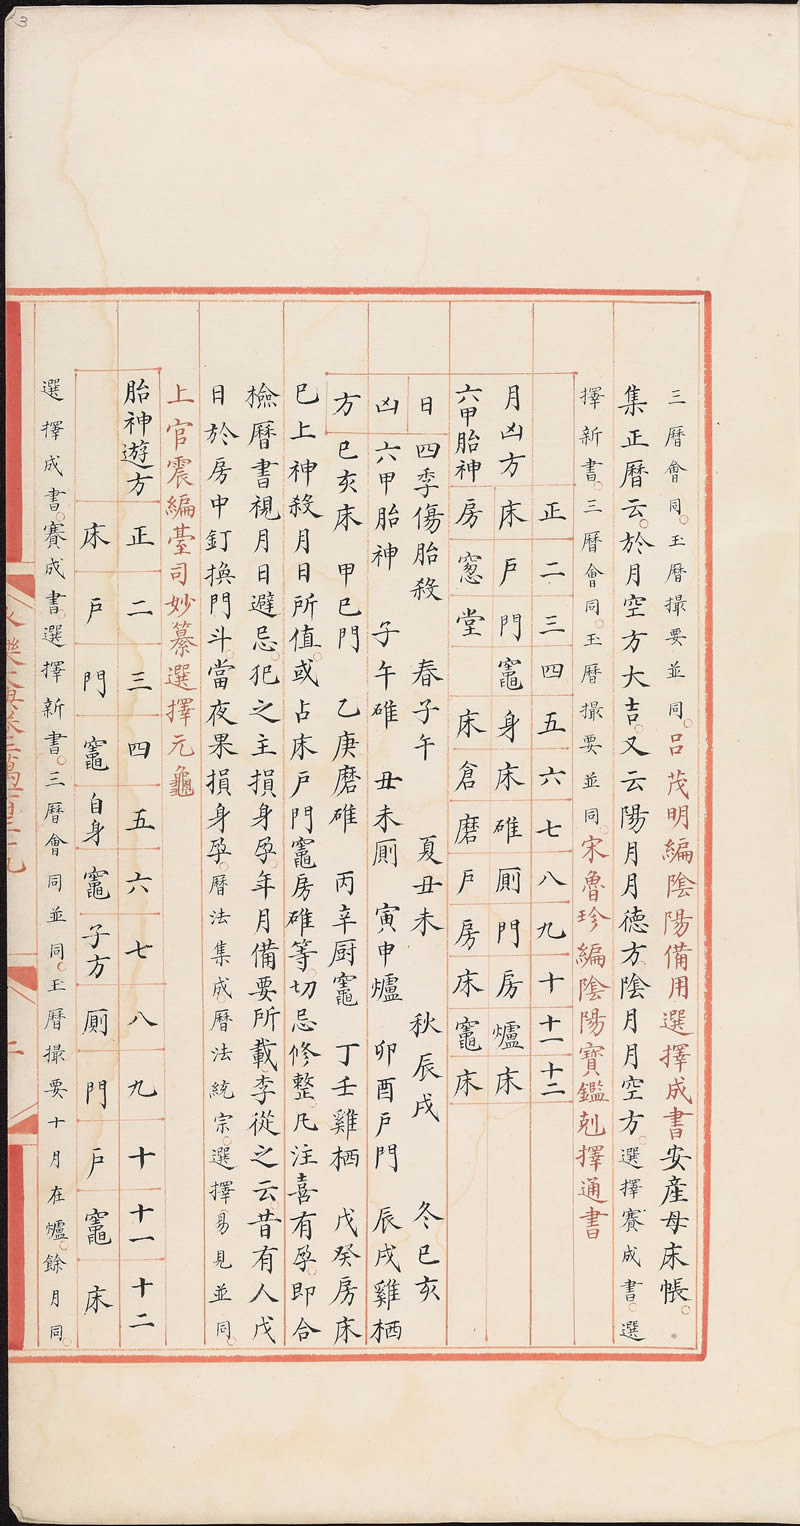 三曆會同。玉曆撮要並同。呂茂明編陰陽備用選擇成書安產母床帳。
集正曆云。於月空方大吉。又云陽月月德方。陰月月空方。選擇賽成書。選
擇新書。三曆會同。玉曆撮要並同。宋魯珍編陰陽寶鑑剋擇通書
正二三四五六七八九十十一十二
月凶方床戶門竈身床碓厠門房爐床
六甲胎神房窻堂床倉磨戶房床竈床
日四季傷胎殺 春子午 夏丑未 秋辰戌 冬巳亥
凶六甲胎神 子午碓 丑未厠 寅申爐 卯酉戶門 辰戌雞栖
方巳亥床 甲巳門 乙庚磨碓 丙辛厨竈 丁壬雞栖 戊癸房床
巳上神殺月日所值。或占床戶門竈房碓等。切忌修整。凡注喜有孕。即合
檢曆書視月日避忌。犯之主損身孕。年月備要所載。李從之云。昔有人戊
日於房中釘換門斗。當夜果損身孕。曆法集成。曆法統宗。選擇易見並同。
上官震編臺司妙纂選擇元龜
胎神遊方正二三四五六七八九十十一十二
床戶門竈自身竈子方厠門戶竈床
選擇成書。賽成書。選擇新書。三曆會同並同。玉曆撮要十月在爐。餘月同。